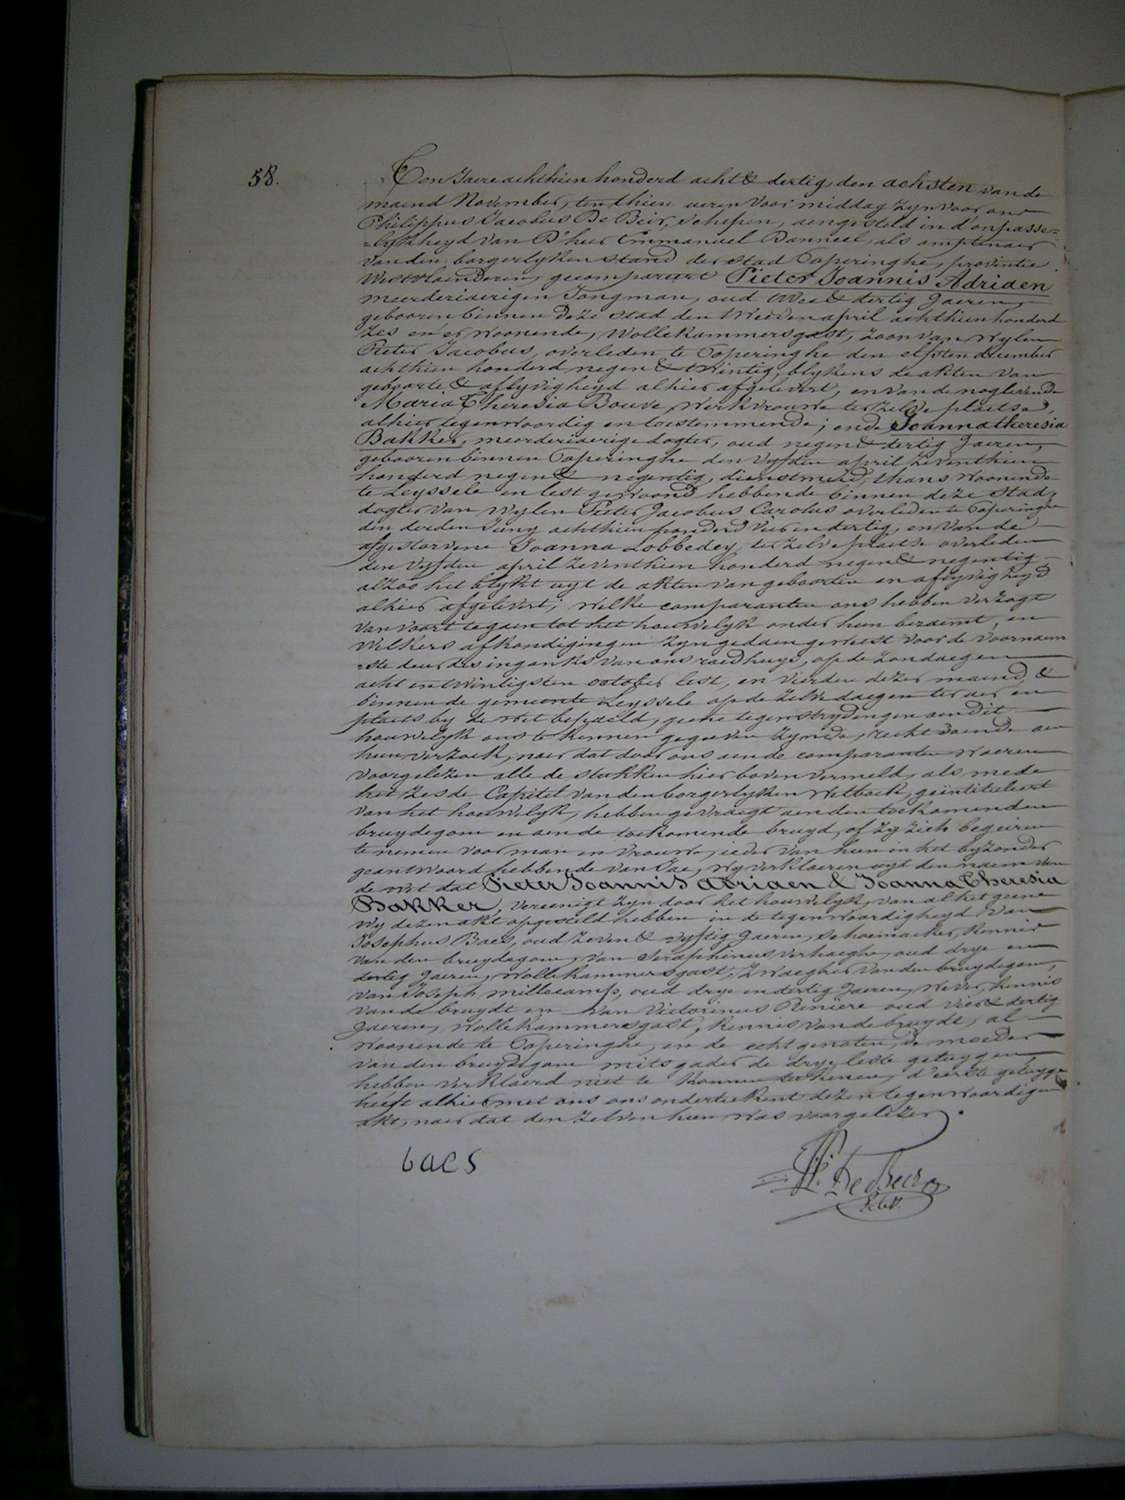 58.
Ten Jaere achthien honderd acht & dertig, den achsten van de
maend November, ten thien ueren voor middag zyn voor ons
Philippus Jacobus De Beir, schepen, aengesteld in d'onpasse=
=lykheyd van D'heer Emmanuel Banneel, als amptenaer
van den borgerlyken stand der stad Poperinghe, provintie
Westvlaenderen, gecompareert Pieter Joannis Adriaen
meerderjaerigen Jongman, oud twee & dertig Jaeren,
gebooren binnen deze stad den tweeden april achthien honderd
zes en er woonende, wollekammersgast, zoon van wylen
Pieter Jacobus, overleden te Poperinghe den elfsten december
achthien honderd negen & twintig, blykens de akten van
geboorte & aflyvigheyd alhier afgelevert, en van de noglevende
Maria Theresia Bouve, werkvrouwe ter zelve plaetse,
alhier tegenwoordig en toestemmende; ende Joanna theresia
Bakker, meerderjaerige dogter, oud negen & dertig Jaeren,
gebooren binnen Poperinghe den vyfden april zeventhien
honderd negen & negentig, dienstmeid, thans woonende
te Leyssele en lest gewoond hebbende binnen deze stad,
dogter van wylen Pieter Jacobus Carolus overleden te Poperinghe
den derden Juny achthien honderd vier en dertig, en van de
afgestorvene Joanna Lobbedey, ter zelve plaetse overleden
den vyfden april zeventhien honderd negen & negentig
alzoo het blykt uyt de akten van geboorten en aflyvigheyd
alhier afgelevert; welke comparanten ons hebben verzogt
van voort te gaen tot het houwelyk onder hun beraemt, en
welkers afkondigingen zyn gedaen geweest voor de voornaem
=ste deur des ingank's van ons raedhuys, op de zondaegen
acht en twintigsten october lest, en vierden dezer maend, &
binnen de gemeente Leyssele op de zelve daegen ter uer en
plaets by de wet bepaeld, geene tegenstrydingen aen dit
houwelyk ons te kennen gegeven zynde, recht doende aen
hun verzoek, naer dat door ons aen de comparanten waeren
voorgelezen alle de stukken hier boven vermeld, als mede
het zesde Capitel van den borgerlyken Wetboek, geintituleert
van het houwelyk, hebben gevraegt aen den toekomenden
bruydegom en aen de toekomende bruyd, of zy zich begeiren
te nemen voor man en vrouwe, ieder van hun in het byzonder
geantwoord hebbende van Jae, wy verklaeren uyt den naem van
de wet dat Pieter Joannis Adriaen & Joanna Theresia
Bakker, vereenigt zyn door het houwelyk, van al het geene
wy dezen akt opgesteld hebben in de tegenwoordigheyd van
Josephus Baes, oud zeven & vyftig Jaeren, schoenmaeker, kennis
van den bruydegom, van Seraphinus verhaeghe, oud drye en
dertig Jaeren, wollekammersgast, zwaegher van den bruydegom,
van Joseph millecamps, oud drye en dertig Jaeren, wever, kennis
van de bruydt en van Victorinus Riniere oud vier & dertig
Jaeren, wollekammersgast, kennis van de bruydt, al
woonende te Poperinghe, en de echtgenoten, de moeder
van den bruydegom mitsgaders de drye leste getuygen
hebben verklaerd niet te konnen teekenen, d'eerste getuyge
heeft alhier met ons ons onderteekent dezen tegenwoordigen
akt, naer dat den zelven hun was voorgelezen.
baes
Ph. De Beir
Schep.